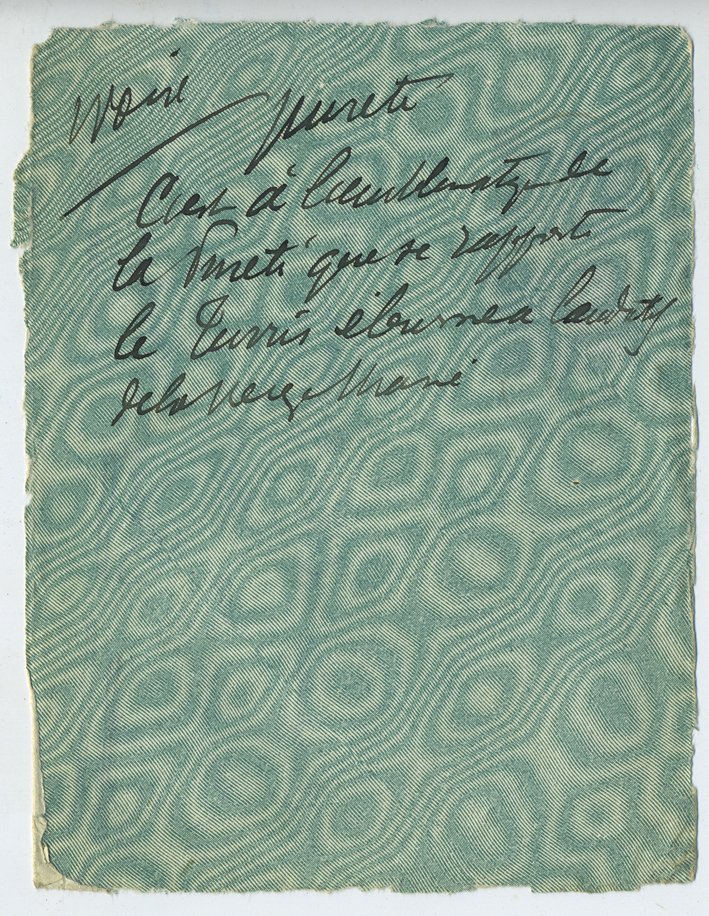 Ivoire
pureté
C'est à l'emblematiq de
la Pureté que se rapporte
le Turris éburnea laudatif
de la Vierge Marie